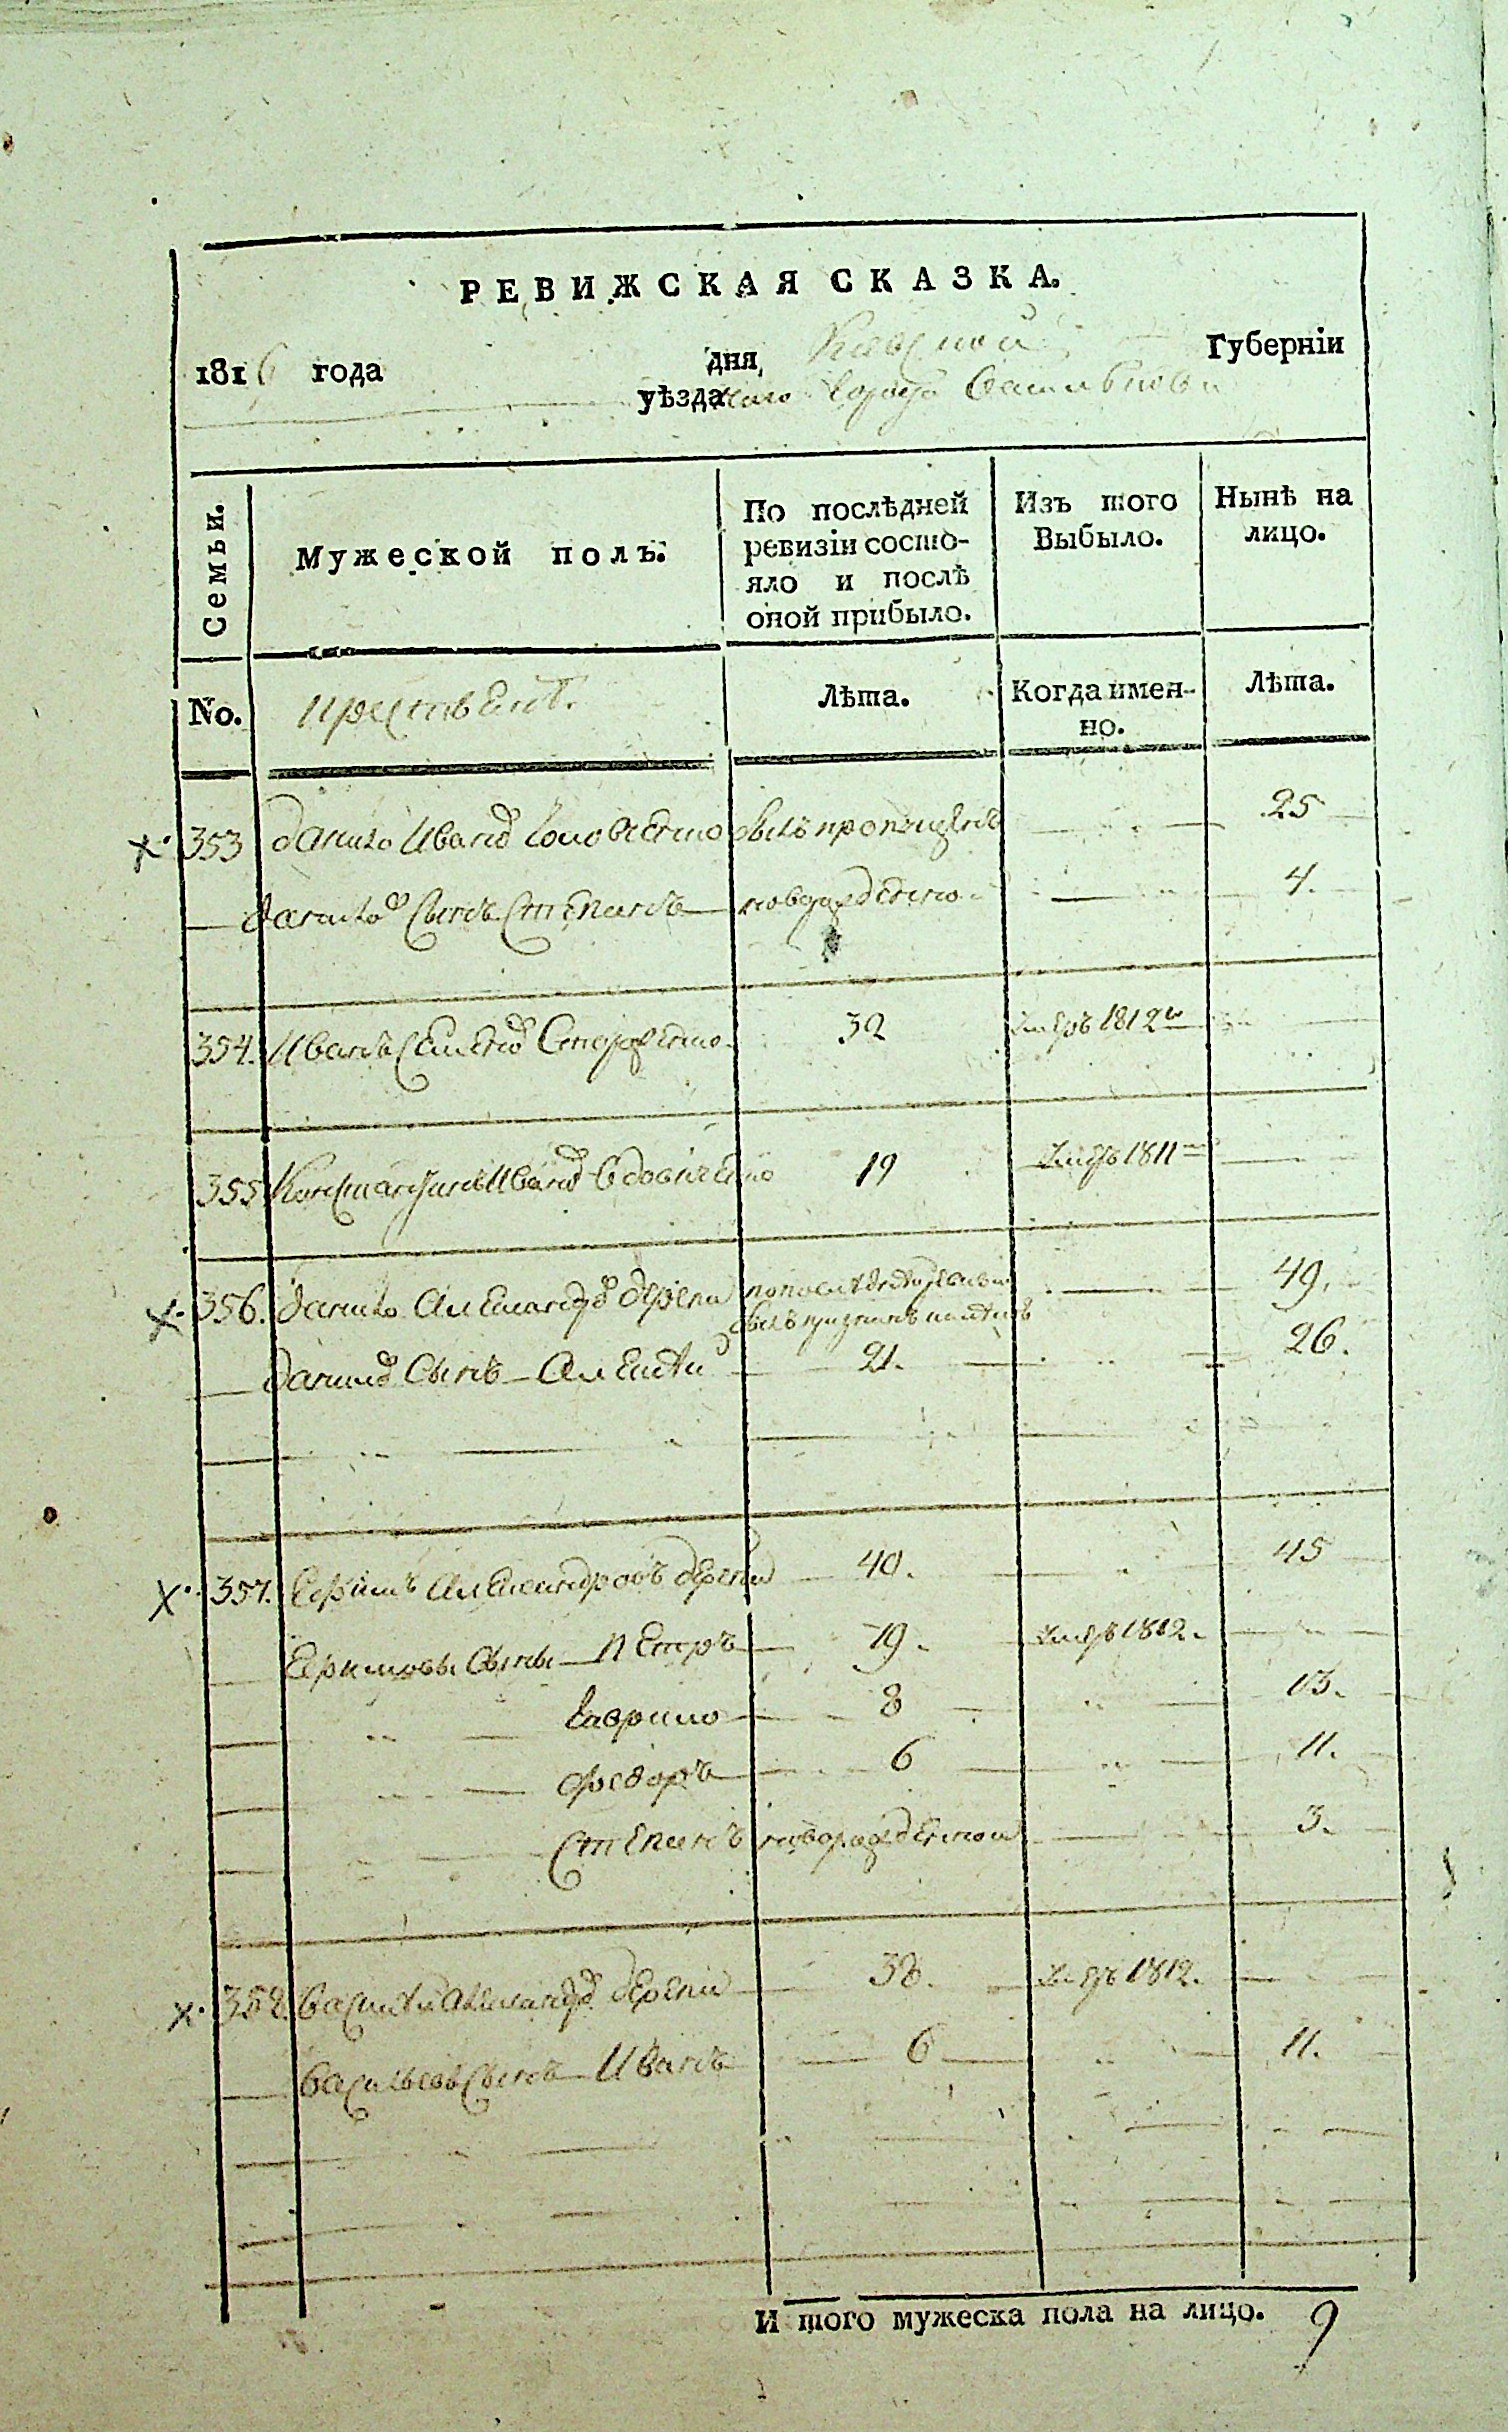 РЕВИЖСКАЯ СКАЗКА.
1816 года дня, Кіевской Губерніи
уѣзда города Василькова
Семьи.
Мужеской полъ.
По послѣдней
ревизіи состо-
яло и послѣ
оной прибыло.
Изъ того
Выбыло.
Нынѣ на
лицо.
No.
крестьянъ.
Лѣта.
Когда имен-
но.
Лѣта.
353 Данило Иванов былъ пропущенъ 25
Данилов Сынъ Степанъ новорожденной 4.
354. Иванъ Семенов 32 умеръ 1812го
355 Константинъ Иванов Вдовиченко 19 умеръ 1811го
356. Данило Александров Дерепа 49.
Данилов Сынъ Алексѣй 21. 26.
357. Ефимъ Александровъ Дерепа 40. 45
Ефимовы Сыны Петръ 19. умеръ 1812.
Гаврило 8 13.
Федоръ 6 11.
Степанъ новорожденной 3.
358. Василий Александров Дерепа 38. умеръ 1812.
Васильевъ Сынъ Иванъ 6 11.
И того мужеска пола на лицо. 9